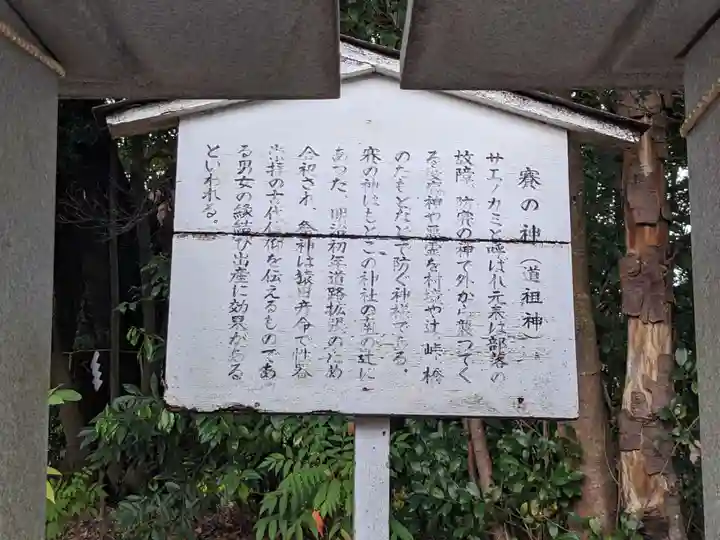 賽の神（道祖神）
サエノカミと呼ばれ元来は部落の
故障、防塞の神で外から襲つてく
る疫病神や悪霊を村境や辻、峠、橋
のたもとなどで防ぐ神様である。
賽の神はもとこの神社の南の辻に
あった、明治初年道路拡張のため
合祀され、祭神は猿田彦命で性器
崇拝の古代信仰を伝えるものであ
る男女の縁結び出産に効果がある
といわれる。